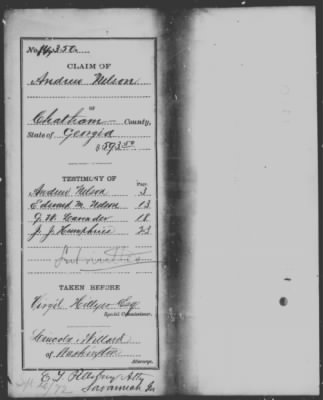 No. 350
CLAIM OF
Andrew Nelson
OF
Chatham County,
State of Georgia
$593.50
TESTIMONY OF
Page.
Andrew Nelson 3
Edward M. Nelson 13
18
J. J. Humphries 23
TAKEN BEFORE
Virgil Hillyer Esq
Special Commissioner.
Willard
of Washington
Attorney.
Atty
Savannah Ga